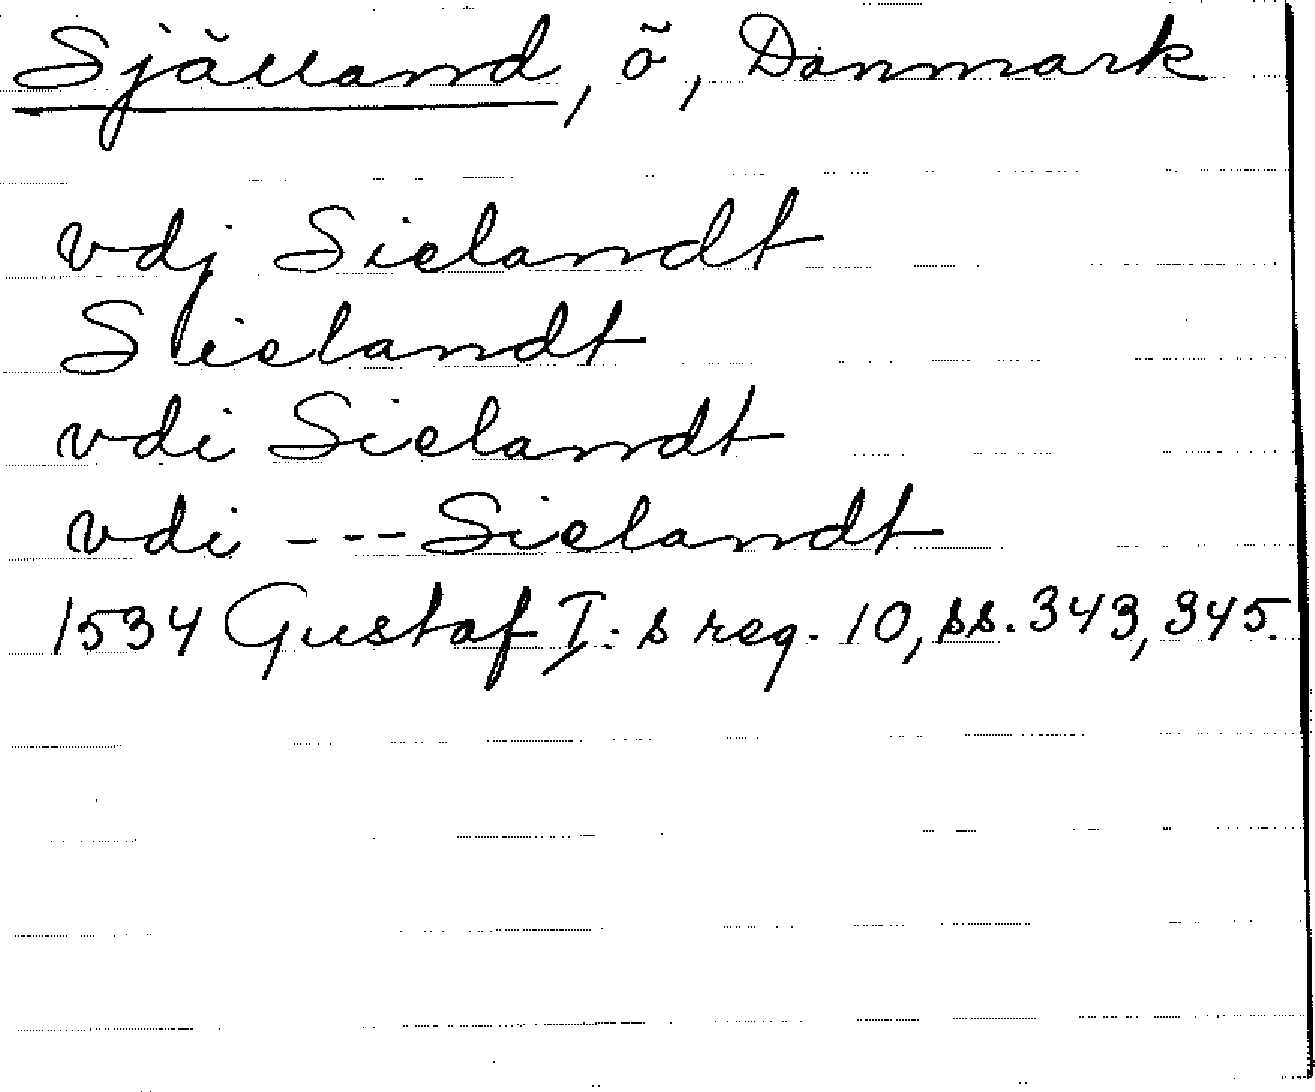 Själland, ö, Danmark
vdj Sielandt
Sielandt
vdi Sielandt
vdi --- Sielandt
1534 Gustaf I:s reg. 10, ss. 343, 345.